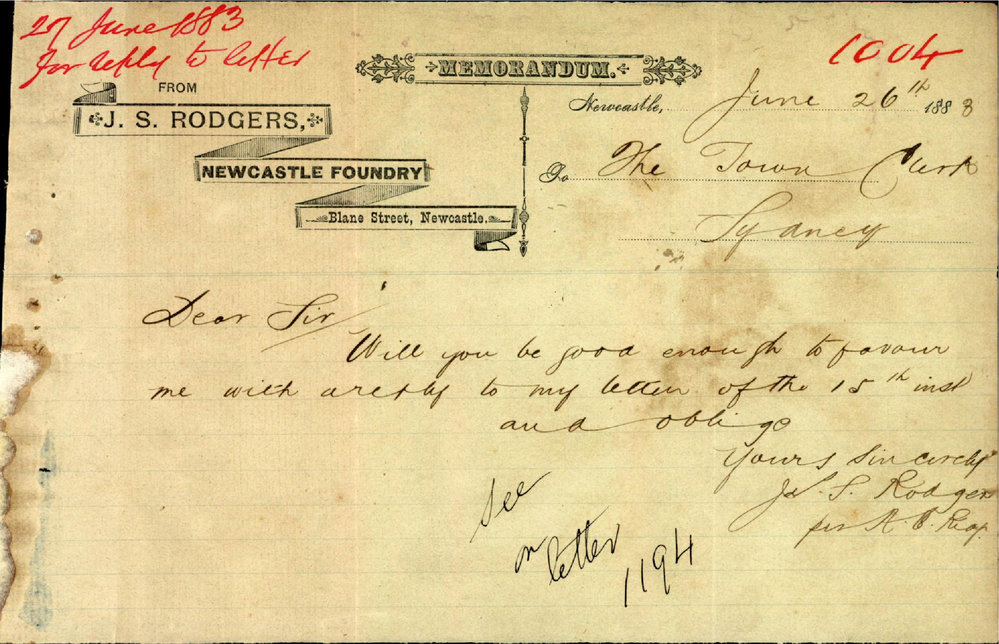 27 June 1883
for reply to letter
1004
MEMORANDUM.
FROM
J. S. RODGERS,
NEWCASTLE FOUNDRY
Blane Street, Newcastle.
Newcastle, June 26th 1883
To The Town Clerk
Sydney
Dear Sir
Will you be good enough to favour
me with a reply to my letter of the 15th inst
and oblige
Yours Sincerely
Js. S. Rodgers
per
See
on
letter
1194